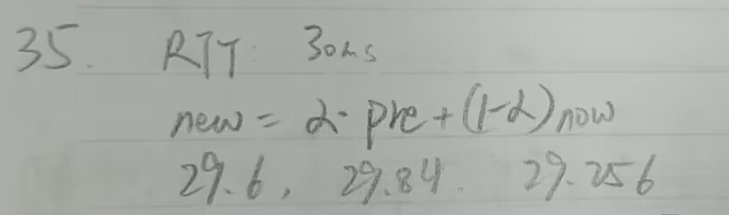 35. RTT: 30ms
new = α· pre + (1-α) now
29.6, 29.84. 29.256